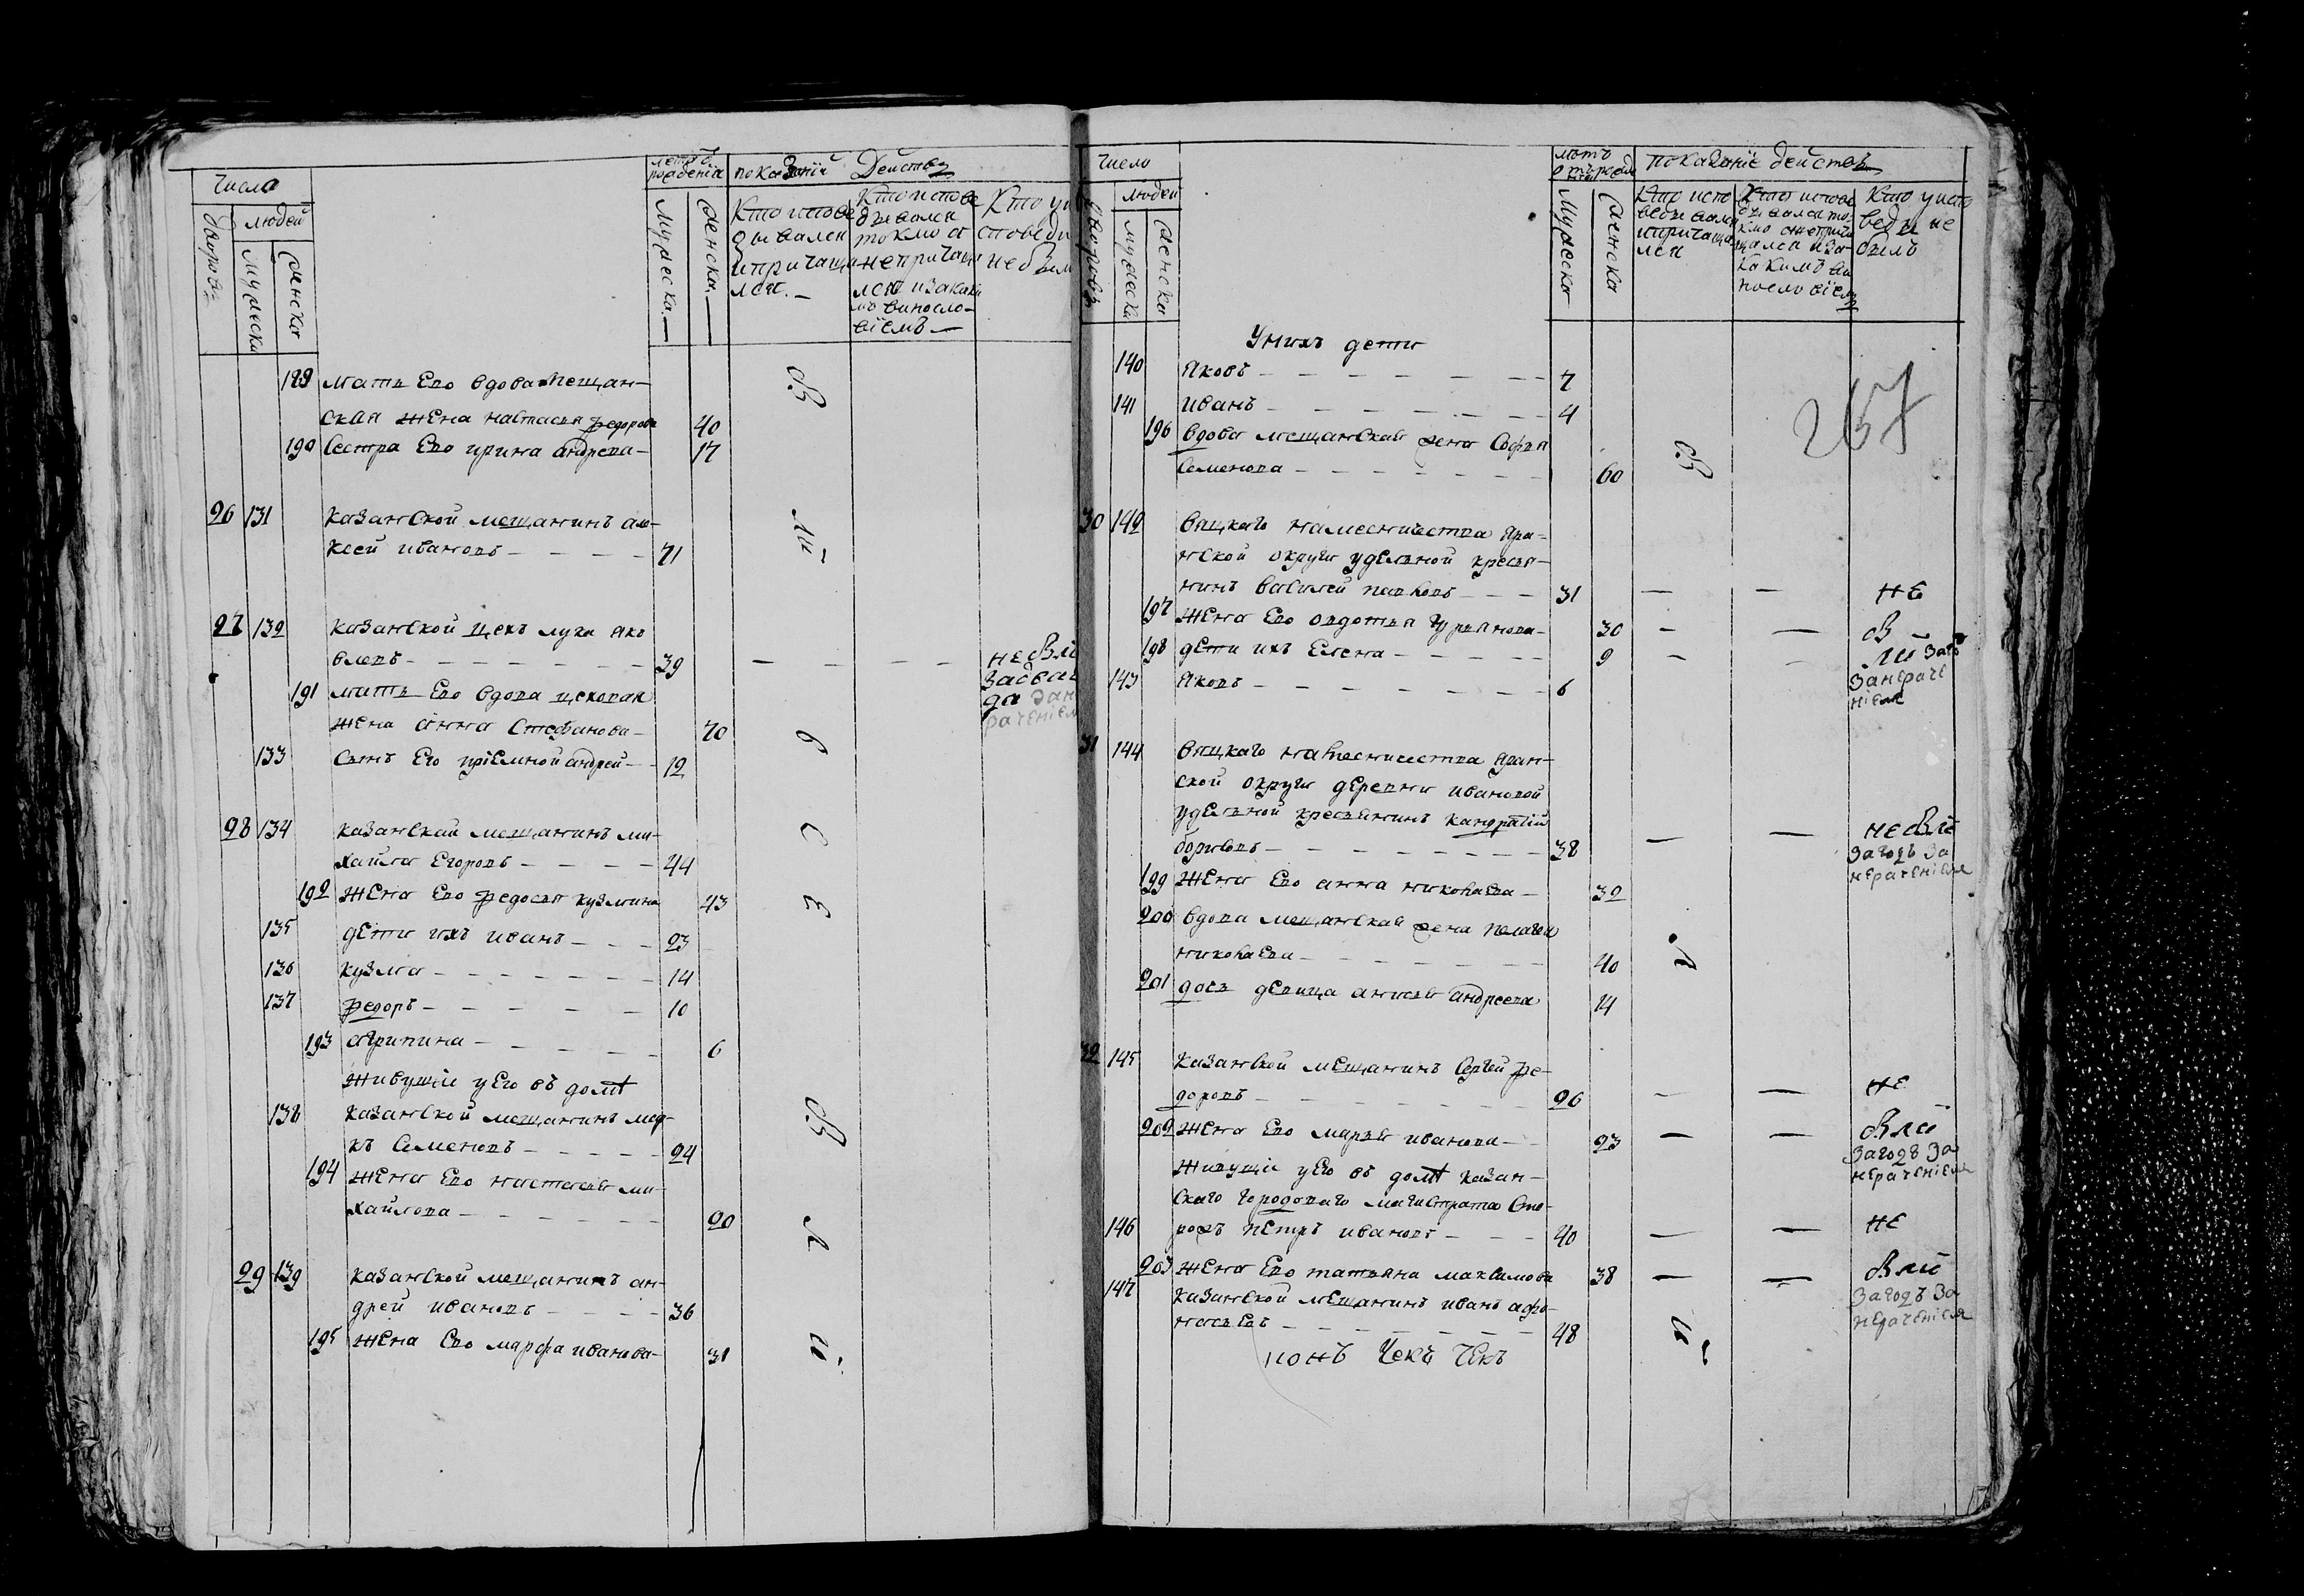 Число
людей
дворовъ
мужеска
женска
летъ
рождения
мужеска
женска
показании Действъ
Кто испове
дывался
и причаща
лся.
Кто испове
дывался
токмо а
не причащ
лся и за каки
мъ виносло-
віемъ
Кто у и
споведи
не былъ
189 мать Ево вдова мещан-
ская жена настасья федорова 40
190 Сестра Ево ирина андреева 17
26 131 казанской мещанинъ але-
ксей ивановъ 71
27 132 казанской цехъ лука яко
влевъ 39
191 мать Ево вдова цеховая
жена анна Стефанова 70
133 Сынъ Его приемной андрей 12
28 134 казанской мещанинъ ми-
хайла Егоровъ 44
192 жена Ево федосья кузмина 43
135 дети ихъ иванъ 23
136 кузма 14
137 федоръ 10
193 агрипина 6
живущіе у Его въ домѣ
138 казанской мещанинъ
Семеновъ 24
194 жена Ево настасья ми-
хайлова 20
29 139 казанской мещанинъ ан-
дрей ивановъ 36
195 жена Ево марфа иванова 31
Число
людей
дворовъ
мужеска
женска
летъ
мужеска
женска
показаніе действъ
Кто испо
ведывался
и причаща
лся
Кто испове
дывался то-
кмо а не прича
щался и за
какимъ ви
нословіемъ
Кто у испо
веди не
былъ
267
У нихъ дети
140 Яковъ 7
141 иванъ 4
196 вдова мещанская жена Софья
Семенова 60
30 142 вяцкаго намесничества яра-
нской округи удельной кресья-
нинъ василей павловъ 31 не
197 жена Ево овдотья гурьянова 30
198 дети ихъ Елена 9
143 Яковъ 6
за нераче
ніем
31 144 вяцкаго намесничества яран-
ской округи деревни ивановой
удельной кресьянинъ кандратій
борисовъ 38
за годъ за
нерачением
199 жена Ево анна николаева 32
200 вдова мещанская жена пелагея
николаева 40
201 дочь девица анисья андреева 14
32 145 казанской мещанинъ Сергей фе-
доровъ 26 не
202 жена Ево марья иванова 23
за годъ за
нерачениемъ
живущіе у Его въ домѣ казан-
скаго городоваго магистрата Сто-
146 рожъ петръ ивановъ 40 не
203 жена Ево татьяна максимова 38
за годъ за
нерачениемъ
147 казанской мещанинъ иванъ афо-
насьевъ 48